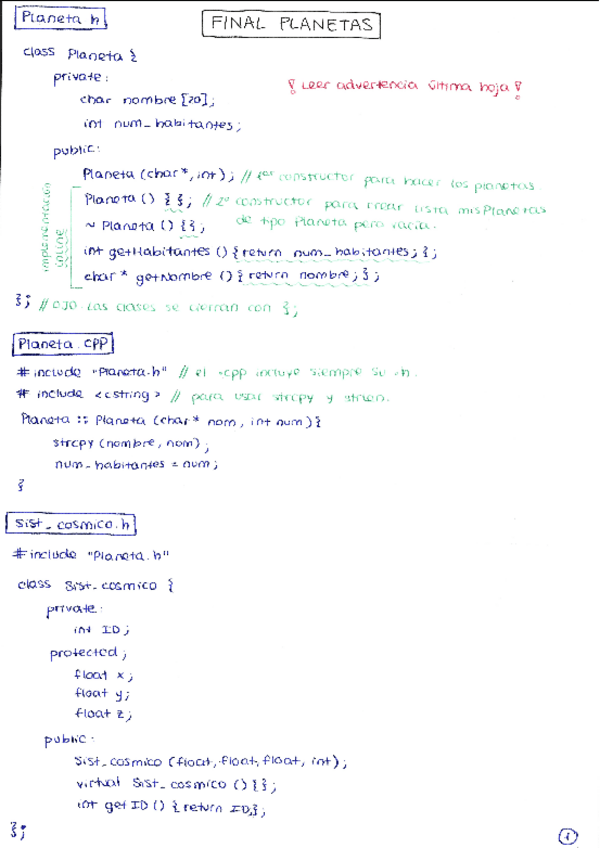 Planeta.h
FINAL PLANETAS
class Planeta {
private:
¡ Leer advertencia última hoja !
char nombre [20];
int num_habitantes;
public:
Planeta (char*, int); // 1er constructor para hacer los planetas.
Planeta () { }; // 2º constructor para crear lista misPlanetas
de tipo Planeta pero vacía.
~ Planeta () { };
implementación
inline
int getHabitantes () { return num_habitantes; };
char * getNombre () { return nombre; };
}; // OJO. Las clases se cierran con };
Planeta.cpp
# include "Planeta.h" // el .cpp incluye siempre su .h.
# include <cstring> // para usar strcpy y strlen.
Planeta :: Planeta (char* nom, int num) {
strcpy (nombre, nom);
num_habitantes = num;
}
Sist_cosmico.h
# include "Planeta.h"
class Sist_cosmico {
private:
int ID;
protected;
float x;
float y;
float z;
public:
Sist_cosmico (float, float, float, int);
virtual Sist_cosmico () { };
int getID () { return ID; };
};
1